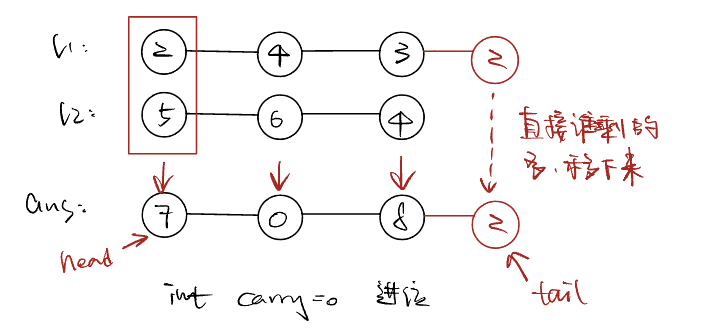 L1: 2 4 3 2
L2: 5 6 4
直接谁剩的
多,移下来
ans: 7 0 8 2
head
tail
int carry=0 进位